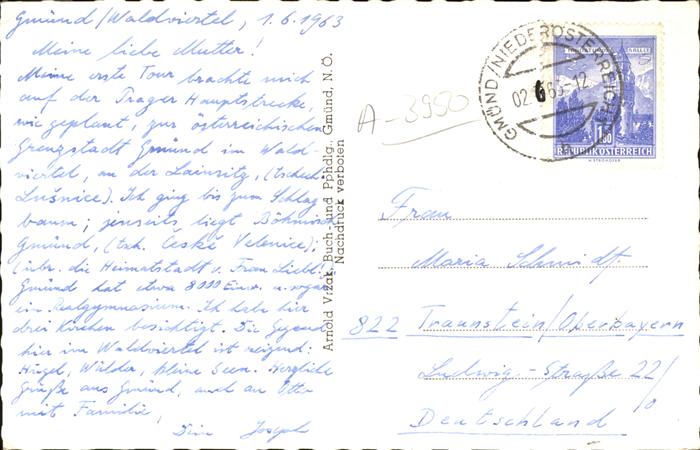 Gmünd/Waldviertel, 1.6.1963
Meine liebe Mutter!
Meine erste Tour brachte mich
auf der Prager Hauptstrecke,
wie geplant, zur österreichischen
Grenzstadt Gmünd im Wald-
viertel, an der Lainsitz, (tschech.
Lušnice). Ich ging bis zum Schlag-
baum; jenseits liegt Böhmisch
Gmünd, (tsch. České Velenice);
(übr. die Heimatstadt v. Frau Liebl!)
Gmünd hat etwa 8000 Einw. u. sogar
ein Realgymnasium. Ich habe hier
drei Kirchen besichtigt. Die Gegend
hier im Waldviertel ist reizend:
Hügel, Wälder, kleine Seen. Herzliche
Grüße aus Gmünd, auch an Otto
mit Familie,
Dein Joseph
Arnold Vrzak, Buch- und Pphdlg., Gmünd, N.Ö.
Nachdruck verboten
A-3950
GMÜND/NIEDERÖSTERREICH
02. 6 63-12
1.80
REPUBLIK ÖSTERREICH
Frau
Maria Schmidt
822 Traunstein/Oberbayern
Ludwig-Straße 22/
Deutschland